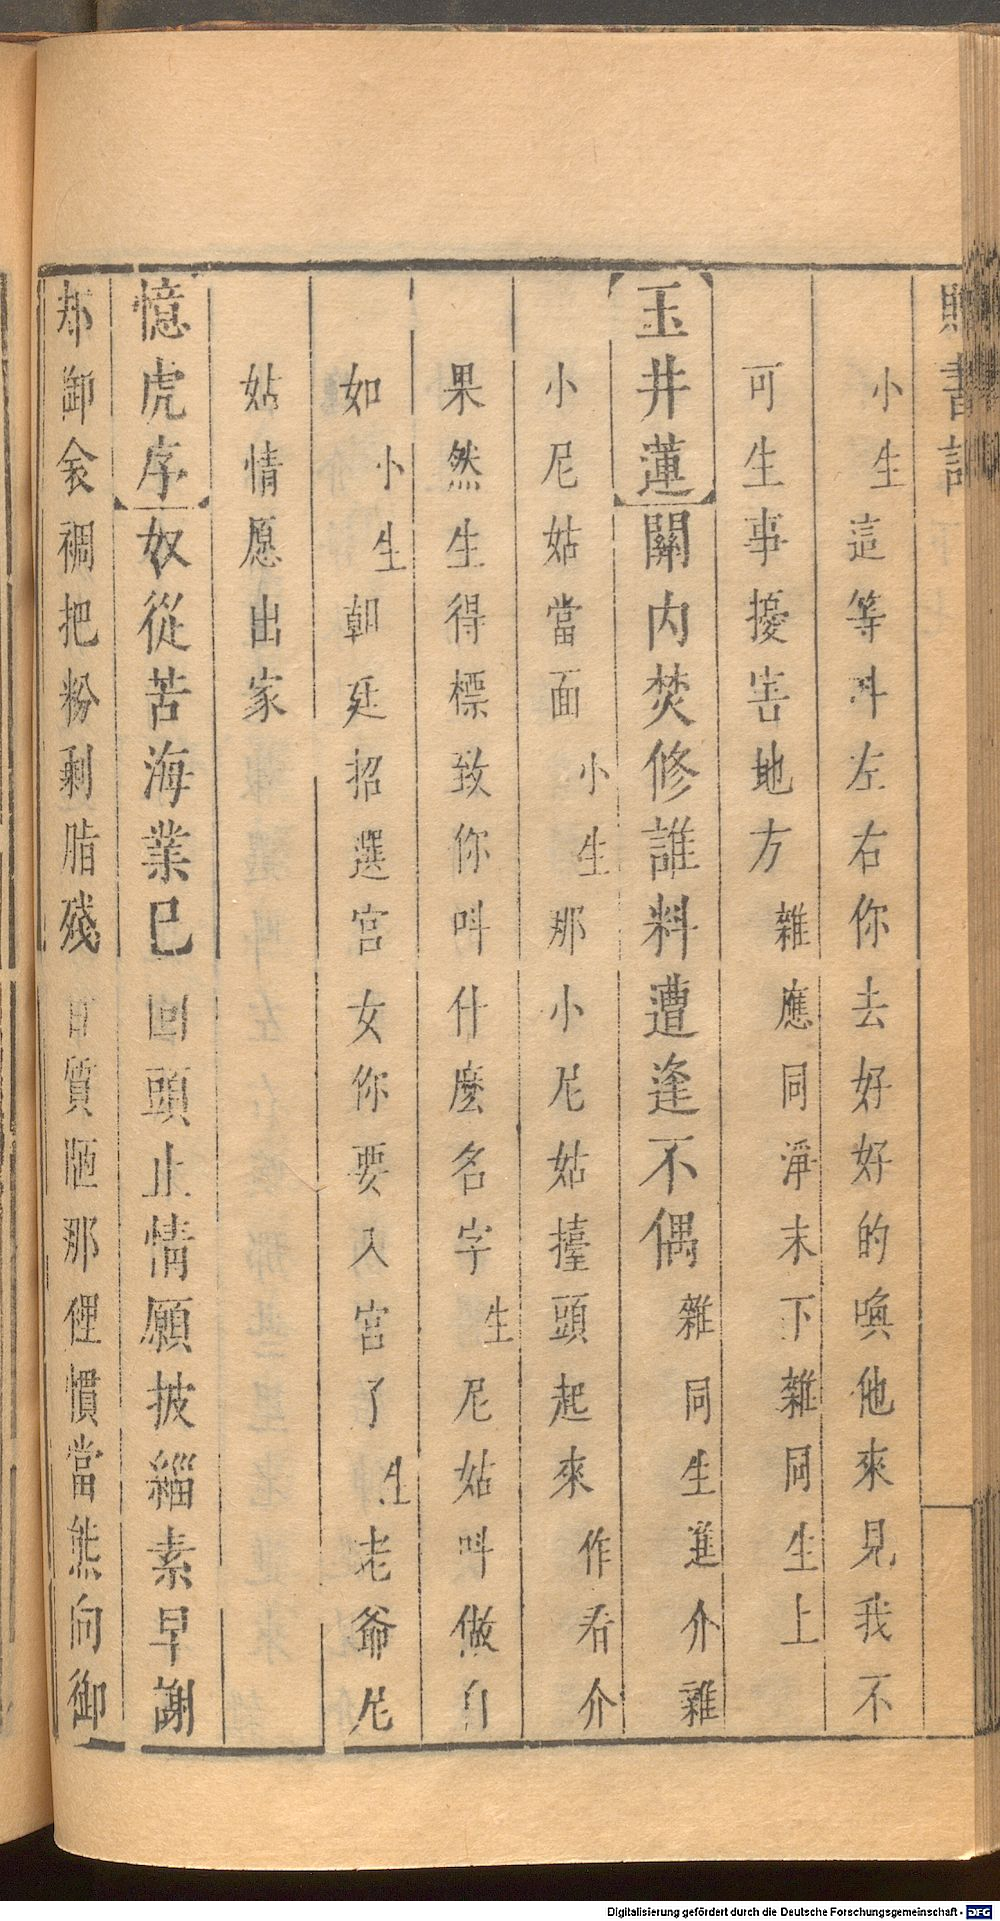 書記
小生這等叫左右你去好好的喚他來見我不
可生事擾害地方雜應同淨末下雜同生上
玉井蓮關內焚修誰料遭逢不偶雜同生進介雜
小尼姑當面小生那小尼姑擡頭起來作看介
果然生得標致你叫什麽名字生尼姑叫做白
如小生朝廷招選宮女你要入宮了生老爺尼
姑情愿出家
憶虎序奴從苦海業已回頭止情願披緇素早謝
却御衾裯把粉剩脂殘質陋那俚慣當熊向御
Digitalisierung gefördert durch die Deutsche Forschungsgemeinschaft - DFG